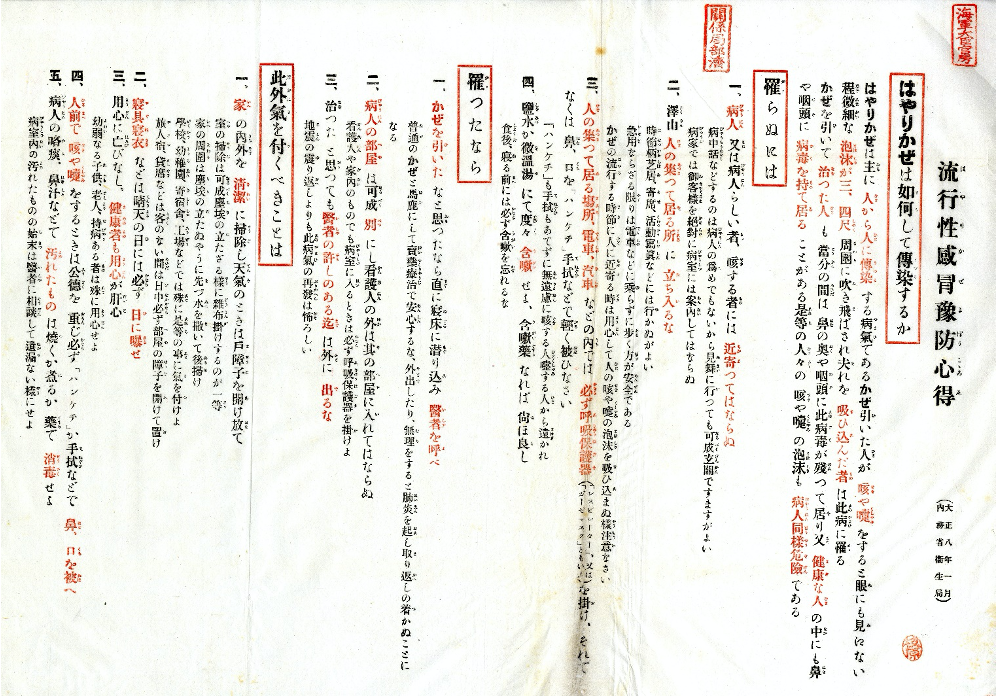 海軍大臣官房
關係局部濟
流行性感冒豫防心得
(大正八年一月
内務省衞生局)
はやりかぜは如何して傳染するか
はやりかぜは主に人から人に傳染する病氣であるかぜ引いた人が咳や嚏をすると眼にも見ゐない
程微細な泡沫が三、四尺周圍に吹き飛ばされ夫れを吸ひ込んだ者は此病に罹る
かぜを引いて治つた人も當分の間は、鼻の奥や咽頭に此病毒が殘つて居り又健康な人の中にも鼻
や咽頭に病毒を持て居ることがある是等の人々の咳や嚏の泡沫も病人同樣危險である
罹らぬには
一、病人又は病人らしい者、咳する者には近寄つてはならぬ
病中話などするのは病人の爲めでもないから見舞に行つても可成玄關ですますがよい
病家では御客樣を絶對に病室には案内してはならぬ
二、澤山人の集つて居る所に立ち入るな
時節柄芝居、寄席、活動寫眞などには行かぬがよい
急用ならざる限りは電車などに乘らずに歩く方が安全である
かぜの流行する時節に人に近寄る時は用心して人の咳や嚏の泡沫を吸ひ込まぬ樣注意なさい
三、人の集つて居る場所、電車、汽車などの内では必ず呼吸保護器(「レスピレーター」、又は「ガーゼマスク」ともいふ)を掛け、それで
なくは鼻、口を「ハンケチ」手拭などで輕く被ひなさい
「ハンケチ」も手拭もあてずに無遠慮に咳する人嚏する人から遠かれ
四、鹽水か微溫湯にて度々含嗽せよ、含嗽藥なれば尚ほ良し
食後、寢る前には必ず含嗽を忘れるな
罹つたなら
一、かぜを引いたなと思つたなら直に寢床に潛り込み醫者を呼べ
普通のかぜと馬鹿にして賣藥療治で安心するな、外出したり、無理をすると肺炎を起し取り返しの着かぬことに
なる
二、病人の部屋は可成別にし看護人の外は其の部屋に入れてはならぬ
看護人や家内のものでも病室に入るときは必ず呼吸保護器を掛けよ
三、治つたと思つても醫者の許しのある迄は外に出るな
地震の震り返しよりも此病氣の再發は怖ろしい
此外氣を付くべきことは
一、家の内外を清潔に掃除し天氣のときは戸障子を開け放て
室の掃除は可成塵埃の立たざる樣に雜布掛けするのが一等
家の周圍は塵埃の立たぬやうに先づ水を撒いて後掃け
學校、幼稚園、寄宿舍、工場などでは殊に是等の事に氣を付けよ
旅人宿、貸席などは客のない間は日中必ず部屋の障子を開けて置け
二、寢具寢衣などは晴天の日には必ず日に曝せ
三、用心に亡びなし、健康者も用心が肝心
幼弱なる子供、老人、持病ある者は殊に用心せよ
四、人前で咳や嚏をするときは公德を重じ必ず「ハンケチ」か手拭などで鼻、口を被へ
五、病人の喀痰、鼻汁などで汚れたものは燒くか煮るか藥で消毒せよ
病室内の汚れたものの始末は醫者に相談して遺漏ない樣にせよ